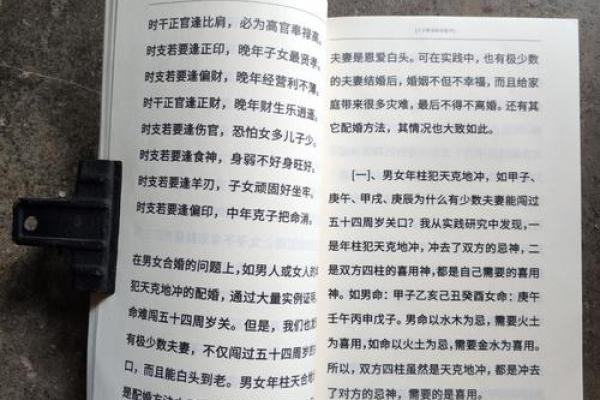 时干正官逢比肩，必为高官奉禄高
时支若要逢正印，晚年子女最贤孝
时支若要逢偏财，晚年经营利不薄
时干正官逢正财，晚年财生乐逍遥
时支若要逢伤官，恐怕女多儿子少。
时支若要逢食神，身弱不好身旺好。
时支若要逢羊刃，子女顽固好坐牢。
时支若要逢偏印，中年克子把命消。
在男女合婚的问题上，如男人或女人的
犯天克地冲的配婚，通过大量实例证明
命难闯五十四周岁关。但是，我们也
有极少数夫妻，不仅闯过五十四周岁
口，而且能白头到老。男女年柱天合地
是配婚方法之一，
夫妻是恩爱白头。可在实践中，也有极少数
的夫妻结婚后，婚姻不但不幸福，而且给家
庭带来很多灾难，最后不得不离婚。还有其
它配婚方法，其情况也大致如此。
[一]、男女年柱犯天克地冲，如甲子、
庚午、甲戌、庚辰为什么有少数夫妻能闯过
五十四周岁关口？我从实践研究中发现，一
是年柱犯天克地冲，冲去了双方的忌神，二
是双方四柱的喜用神，都是自己需要的喜用
神。如男命：甲子乙亥己丑癸酉女命：庚午
壬午丙申戊子。男命以水木为忌，需要火土
为喜用，如命以火土为忌，需要金水为喜用。
所以，双方四柱虽然是天克地冲，都是冲去
了对方的忌神，需要的是喜用。